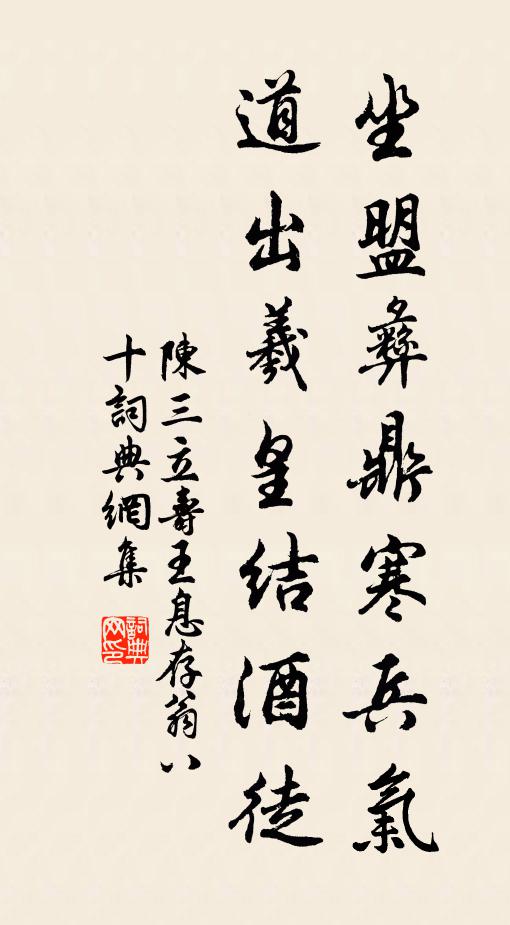 坐盟彝鼎寒兵氣
道出羲皇結酒徒
陳三立壽王息存翁八
十詞典網集
詞典
网印